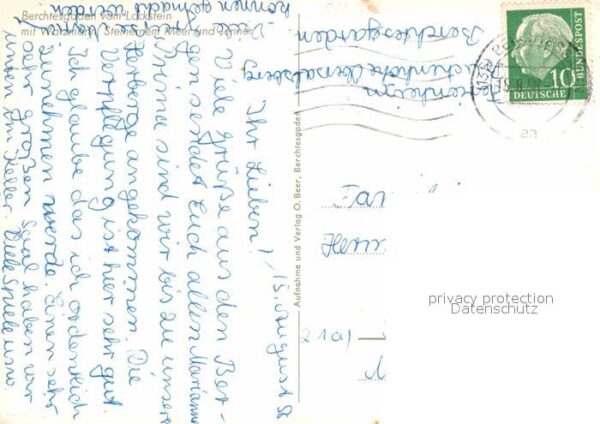 Berchtesgaden vom Lockstein
mit Watzmann, Steinernem Meer und Jenner
15. August 58
Ihr Lieben!
Viele Grüße aus den Ber-
gen sendet Euch allen Marianne
Prima sind wir bis zu unserer
Herberge angekommen. Die
Verpflegung ist hier sehr gut.
Ich glaube das ich ordentlich
zunehmen werde. Einen sehr
oder großen Saal haben wir
unten im Keller. Viele Spiele usw.
können gemacht werden.
Viele
Berchtesgarden
Obersalzberg
Aufnahme und Verlag O. Beer, Berchtesgaden
10
DEUTSCHE
BUNDESPOST
aa
Fam
Herm
21a)
privacy protection
Datenschutz